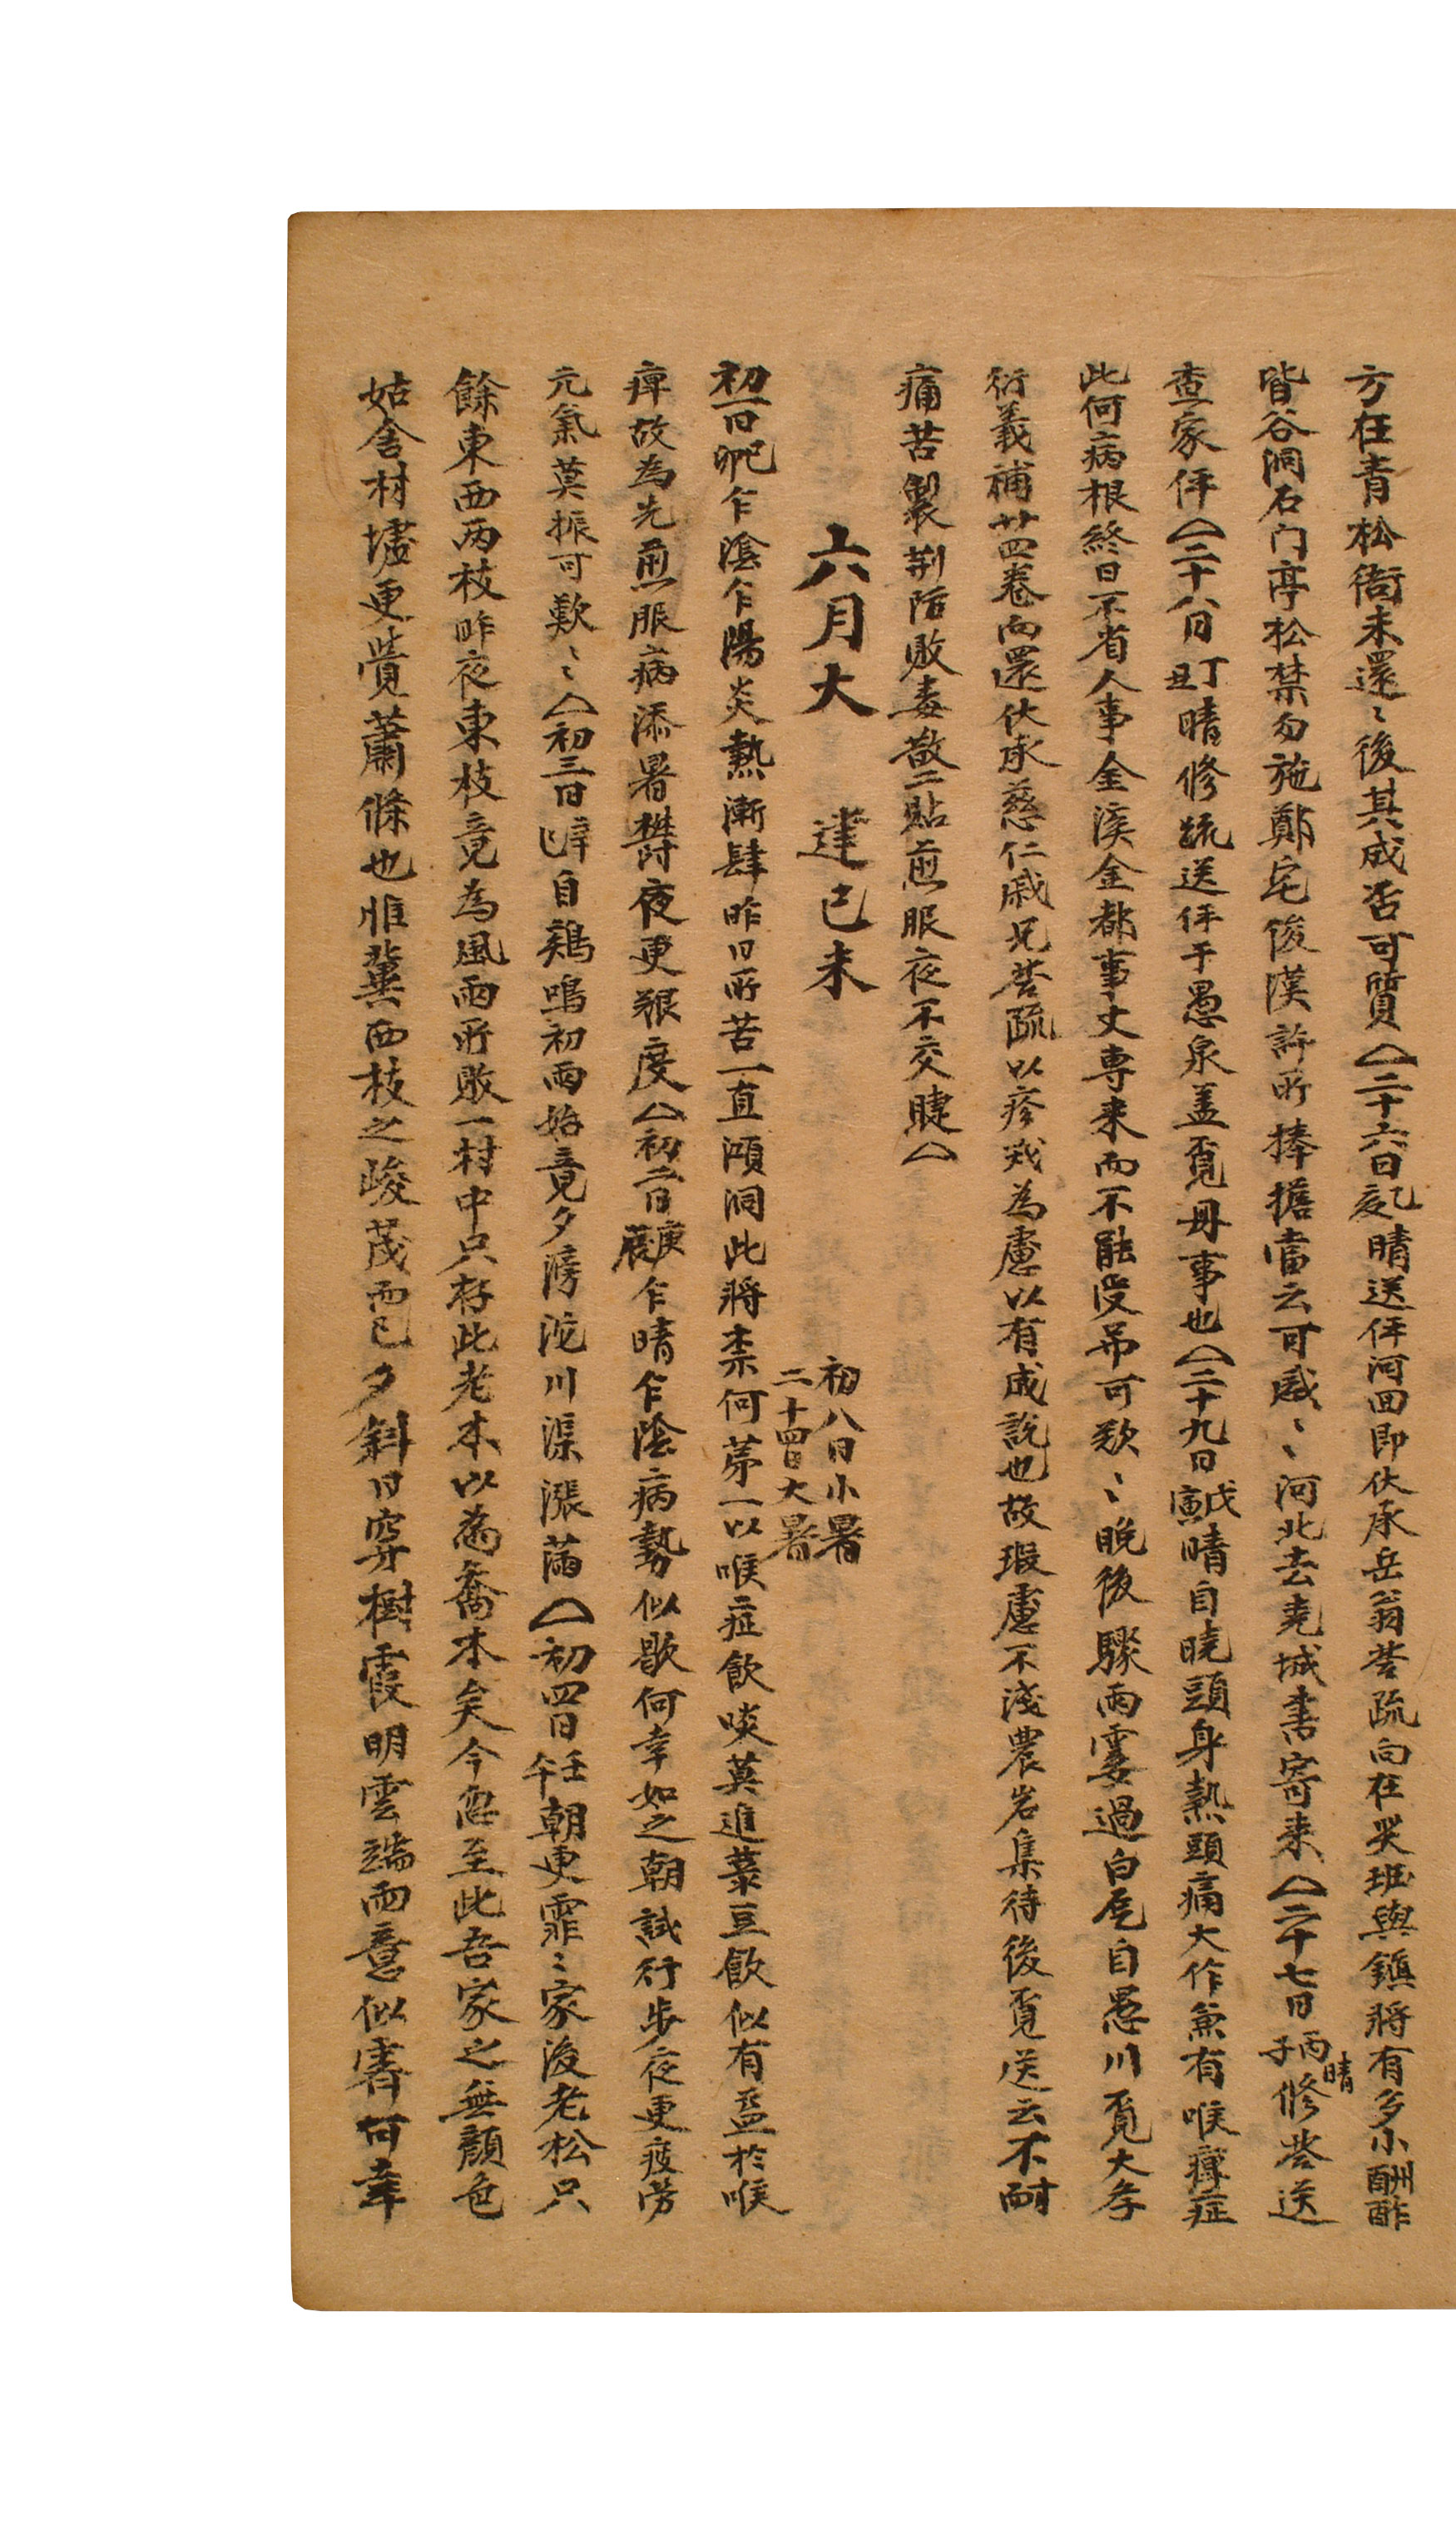 方在青松衙未還〻後其成否可質△二十六日乙亥晴送伻河回即伏承岳翁答疏向在哭班與鎭將有多小酬酢
皆谷洞石门亭松禁勿施鄭宅俊漢許所捧擔當云可感〻河北去堯城書寄来△二十七日丙子晴修答送
查家伻△二十八日丁丑晴修疏送伻于愚泉盖覔毋事也△二十九日戊寅晴自曉頭身熱頭痛大作兼有喉痺症
此何病根終日不省人事金溪金都事丈専来而不能受吊可歎〻晩後驟雨霎過白巵自愚川覔大学
衍義補廿四卷而還伏承慈仁戚兄答疏以疹戎為慮以有成說也故瑕慮不淺農岩集待後覔送云不耐
痛苦製荆防敗毒散二貼煎服夜不交睫△
六月大　建己未　初八日小暑
二十四日大暑
初一日己卯乍陰乍陽炎熱漸肆昨日所苦一直澒洞此將柰何苐一以喉症飮啖莫進菉豆飮似有益於喉
痺故為先煎服病添暑欝夜更艱度△初二日庚辰乍晴乍陰病勢似歇何幸如之朝試行步夜更疲劳
元氣莫振可歎〻△初三日辛巳自鷄鳴初雨始竟夕滂沱川渠漲滿△初四日壬午朝更霏〻家後老松只
餘東西两枝昨夜東枝竟為風雨所敗一村中只存此老木以為喬木矣今忽至此吾家之無顏色
姑舍村墟更覺蕭條也惟冀西枝之峻茂而已夕斜日穿樹霞明雲端雨意似霽何幸